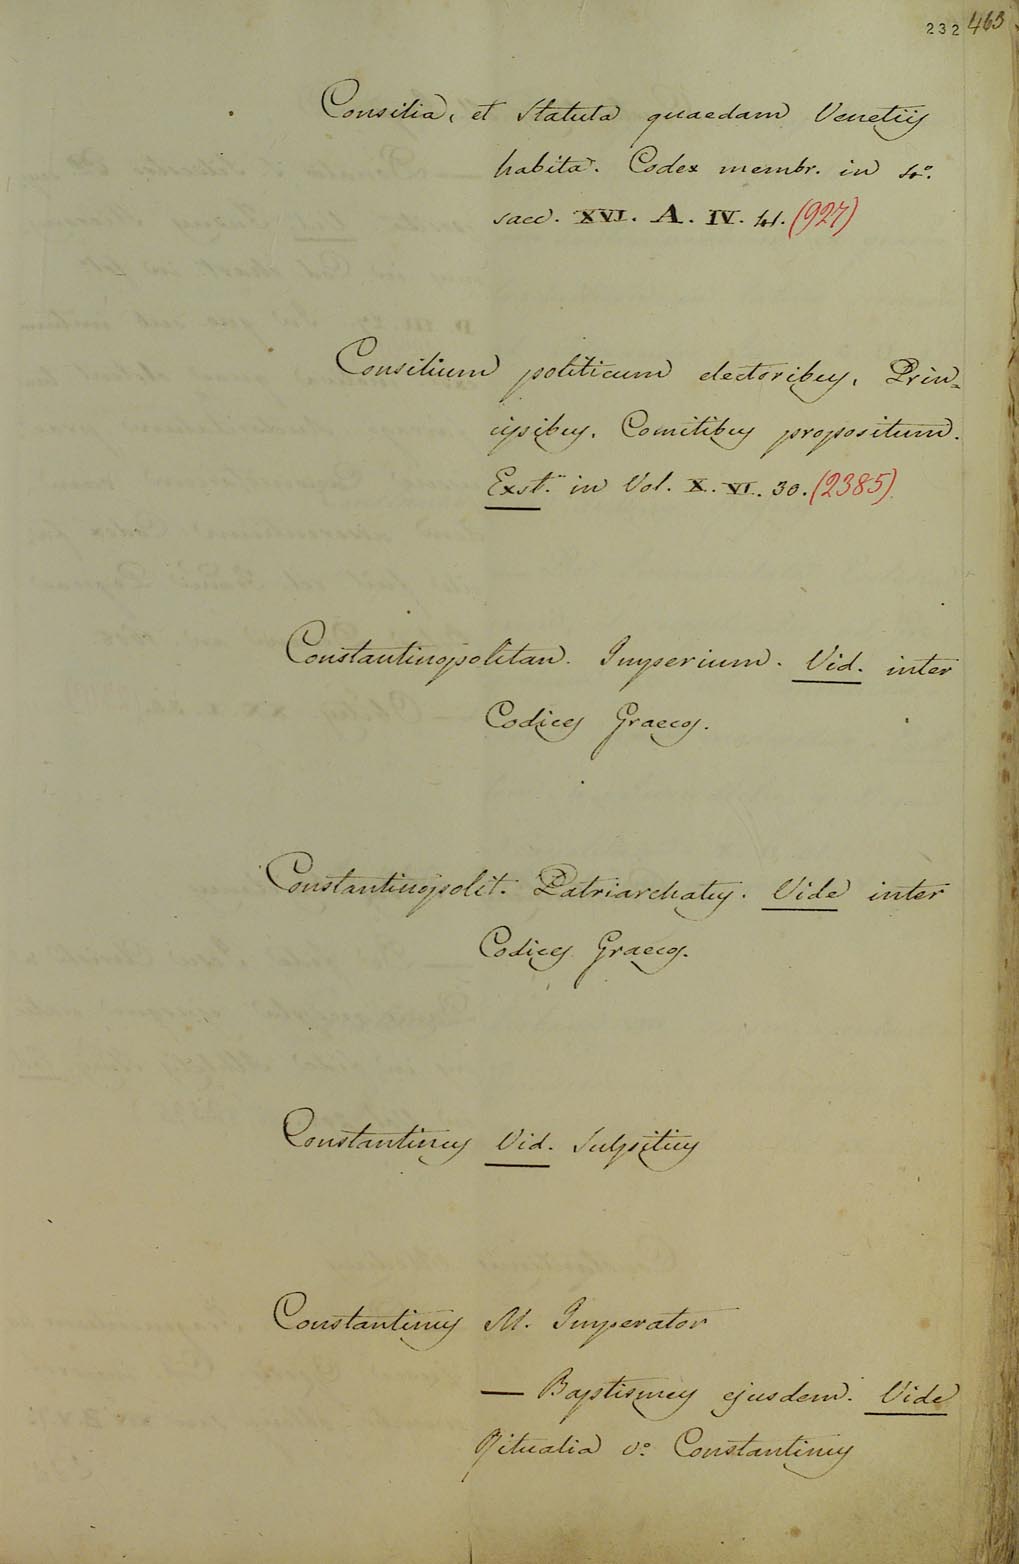 232 463
Consilia, et Statuta quaedam Venetiis
habita. Codex membr. in 4o.
saec. XVI. A. IV. 41. (927)
Consilium politicum electoribus, Prin-
cipibus, Comitibus propositum.
Exst. in Vol. X. VI. 30. (2385)
Constantinopolitan. Imperium. Vid. inter
Codices Graecos.
Constantinopolit. Patriarchatus. Vide inter
Codices Graecos.
Constantinus Vid. Sulpitius
Constantinus M. Imperator
— Baptismus ejusdem. Vide
Ritualia vo. Constantinus